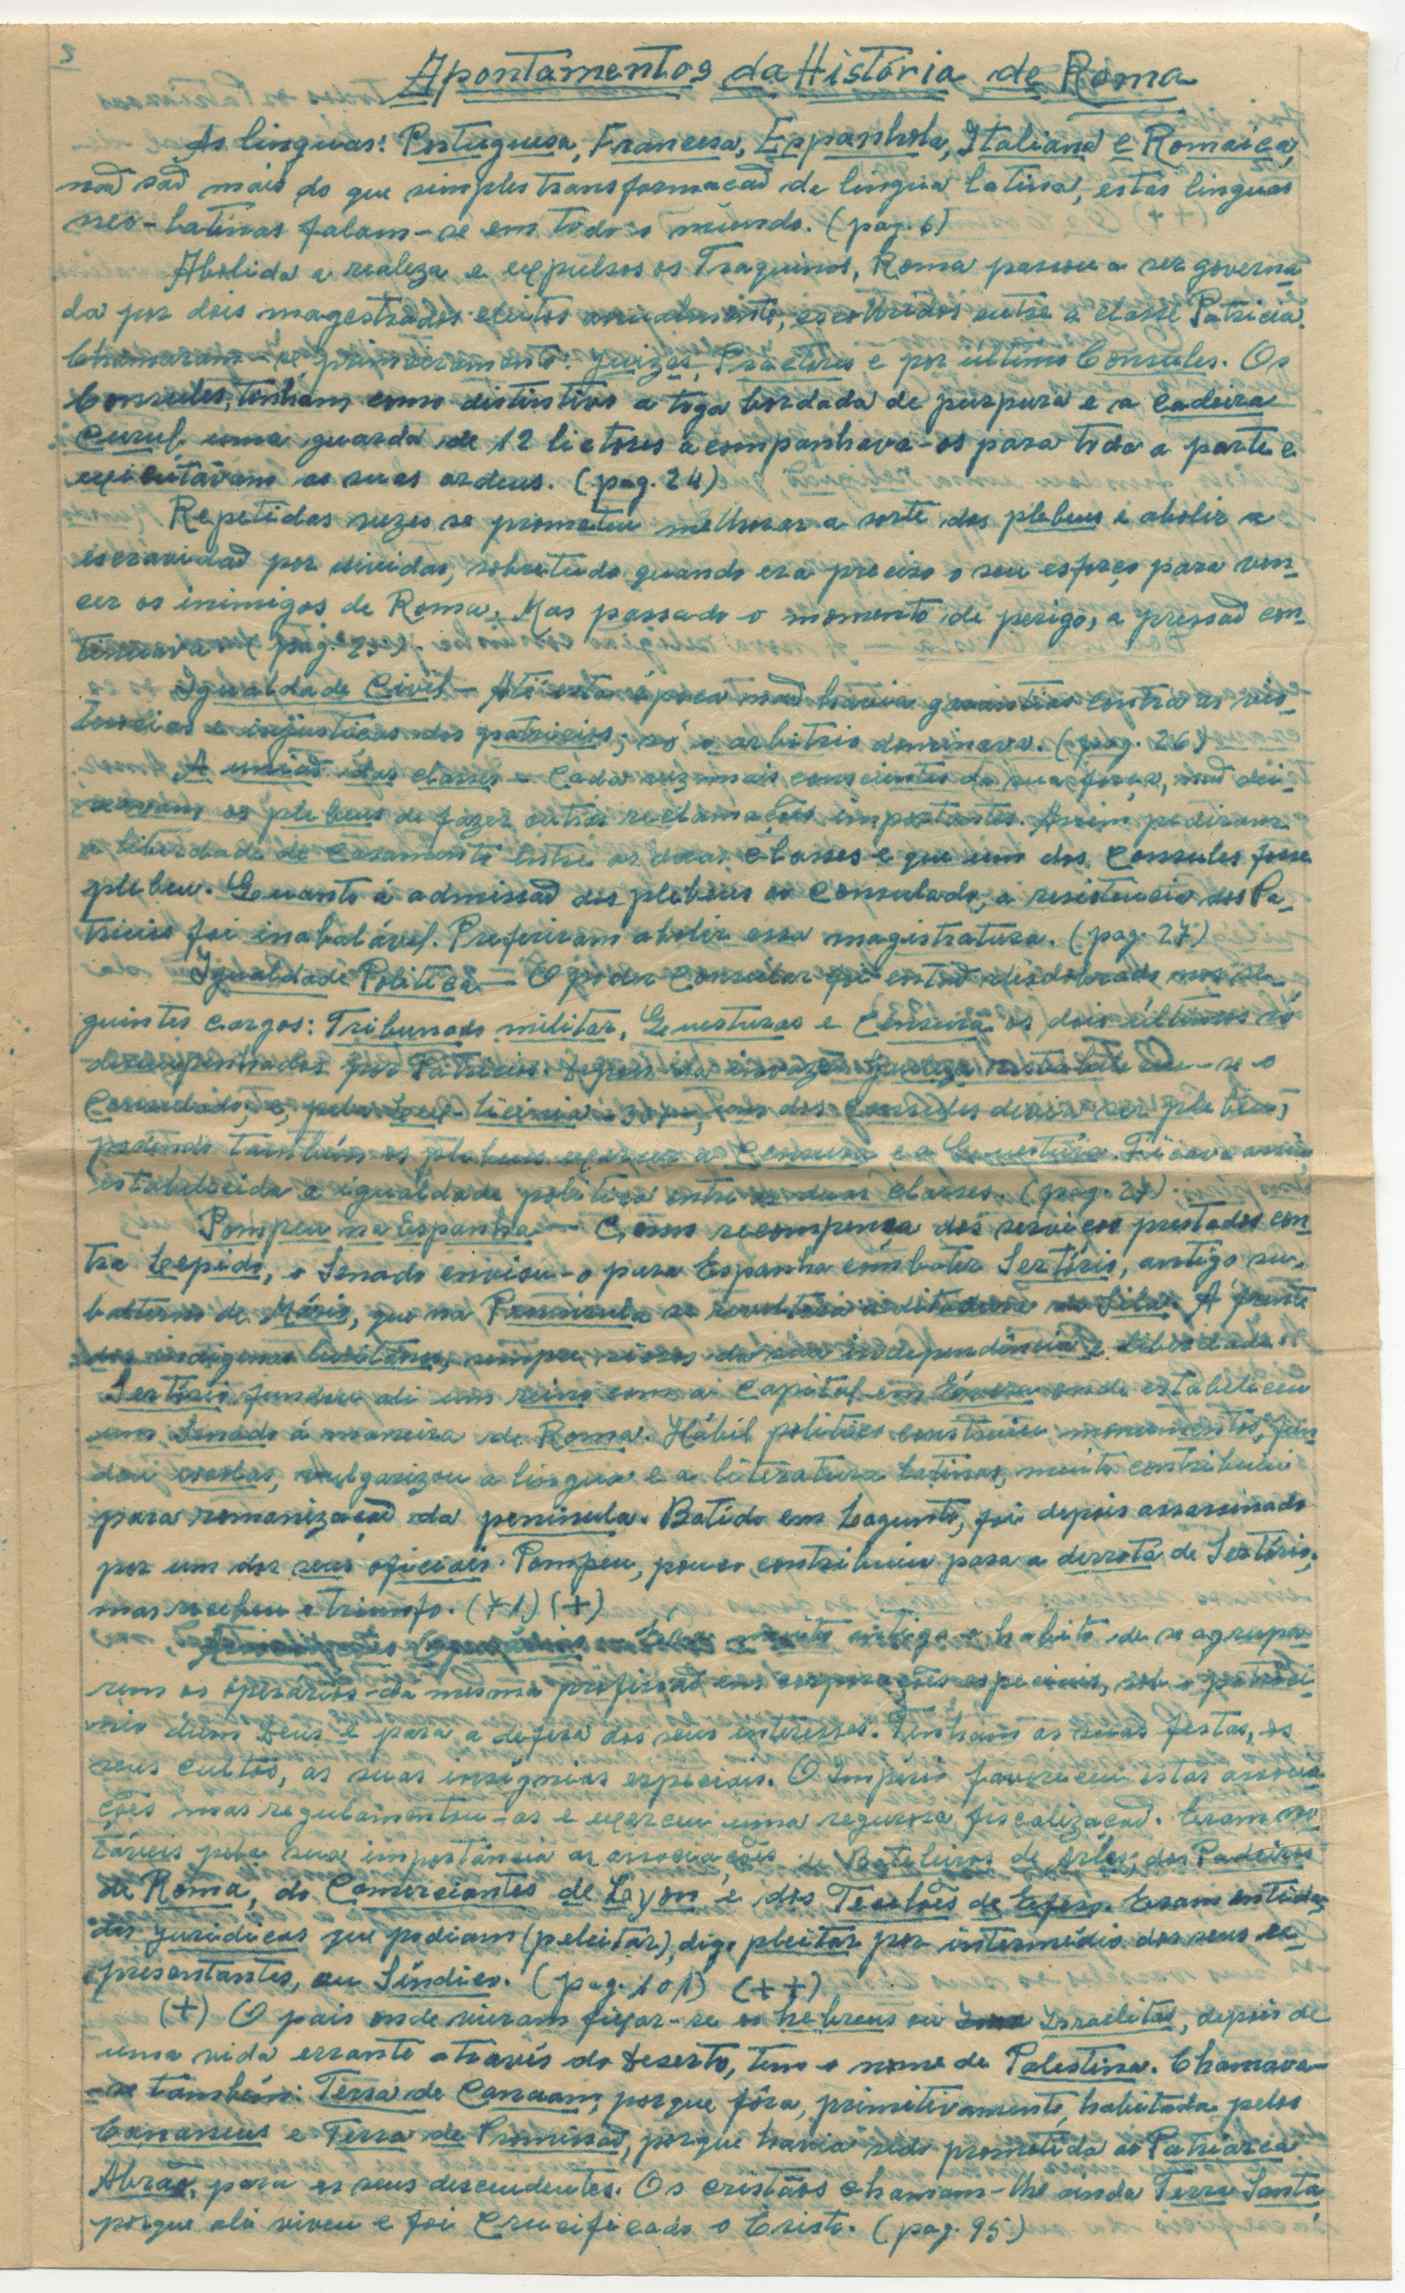 3
Apontamentos da História de Roma
As linguas: Portuguesa, Francesa, Espanhola, Italiana e Romaica,
naõ saõ mais do que simples transformacaõ de lingua latina, estas linguas
neo-latinas falam-se em todo o mundo. (pag. 6)
Abolida a realeza e expulsos os Traquinos, Roma passou a ser governa-
da por dois magestrados eleitos anualmente, escolhidos entre a classe Patricia.
Chamaram-se, primeiramente: Juizes, Practores e por ultimo Consules. Os
Consules, tinham como distintivo a toga bordada de purpura e a Cadeira
Curul, uma guarda de 12 lictores acompanhava-os para toda a parte e
executavam as suas ordens. (pag. 24)
Repetidas vezes se prometeu melhorar a sorte dos plebeus e abolir a
escravidaõ por dividas, sobretudo quando era preciso o seu esforço para ven-
cer os inimigos de Roma. Mas passado o momento de perigo, a pressaõ con-
tinuava (pag. 25).
Igualdade Civil - Até esta época naõ havia garantias contra as vio-
lencias e injustiças dos patricios; só o arbitrio dominava. (pag. 26)
A uniaõ das classes - Cada vez mais conscientes da sua força, naõ dei-
xavam os plebeus de fazer outras reclamações importantes. Assim pediram
a liberdade de casamento entre as duas classes e que um dos Consules fosse
plebeu. Quanto á admissaõ dos plebeus ao Consulado, a resistencia dos Pa-
tricios foi inabalável. Preferiram abolir essa magistratura. (pag. 27)
Igualdade Politica - O poder Consular foi entaõ desdobrado nos se-
guintes cargos: Tribunado militar, Questuras e Censura os dois últimos só
desempenhados por Patricios. Depois da invazaõ restabeleceu-se o
Consulado, e, pela Lex Licinia um dos consules devia ser plebeu,
podendo também os plebeus exercer a Censura e a Questura. Ficava assim
estabelecida a igualdade politica entre as duas classes. (pag. 27).
Pompeu na Espanha - Como recompensa dos serviços prestados con-
tra Lepido, o Senado enviou-o para Espanha combater Sertório, antigo su-
balterno de Mário, que na Peninsula se revoltára a ditadura de Sila. Á frente
dos indigenas lusitanos, sempre da sua independência e liberdade.
Sertório fundou ali um reino com a Capital em Évora onde estabeleceu
um Senado á maneira de Roma. Hábil politico construiu monumentos, fun-
dou escolas, vulgarizou a lingua e a literatura latinas, muito contribuiu
para romanizacaõ da peninsula. Batido em Sagunto, foi depois assassinado
por um dos seus oficiais. Pompeu, pouco contribuiu para a derrota de Sertório,
mas recebeu o triunfo. (71) (+)
Era muito antigo o habito de se agrupa-
rem os operários da mesma profissaõ em corporações especiais, sob o patroci-
nio dum Deus e para a defesa dos seus interesses. Tinham as suas festas, os
seus cultos, as suas insígnias especiais. O Império favoreceu estas associa-
ções mas regulamentou-as e exerceu uma regurosa fiscalizacaõ. Eram no-
táveis pela sua importância as associações de Bateleiros de Arles, dos Padeiros
de Roma, do Comerciantes de Lyon e dos Tecelões de Efeso. Eram entida-
des juridicas que podiam (peleitar), digo pleitar por intermédio dos seus re-
presentantes, ou Síndico. (pag. 101) (++)
(+) O pais onde vieram fixar-se os hebreus ou Israelitas, depois de
uma vida errante através do Deserto, tem o nome de Palestina. Chamava-
-se também: Terra de Canaam, porque fôra, primitivamente, habitada pelos
Cananeus e Terra de Promissaõ, porque havia sido prometida ao Patriarca
Abraõ, para os seus descendentes. Os cristãos chamam-lhe ainda Terra Santa
porque ali viveu e foi Crucificado o Cristo. (pag. 95)